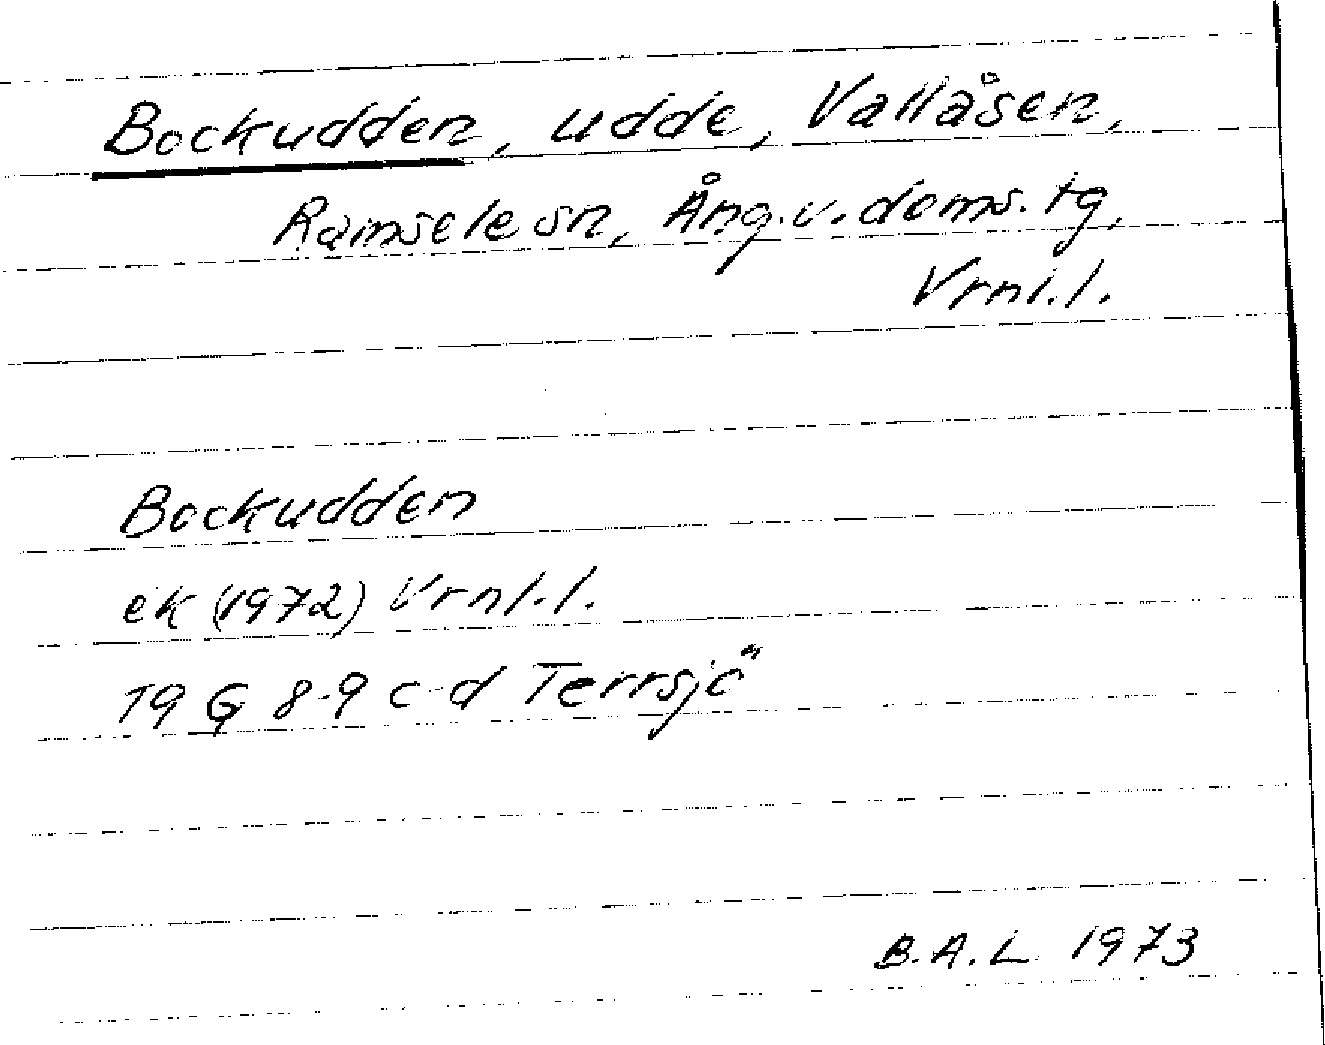 Bockudden, udde, Vallåsen,
Ramsele sn, Ång.v.doms.tg,
Vrnl.l.
Bockudden
ek (1972) Vrnl.l.
19 G 8-9 c-d Terrsjö
B.A.L 1973